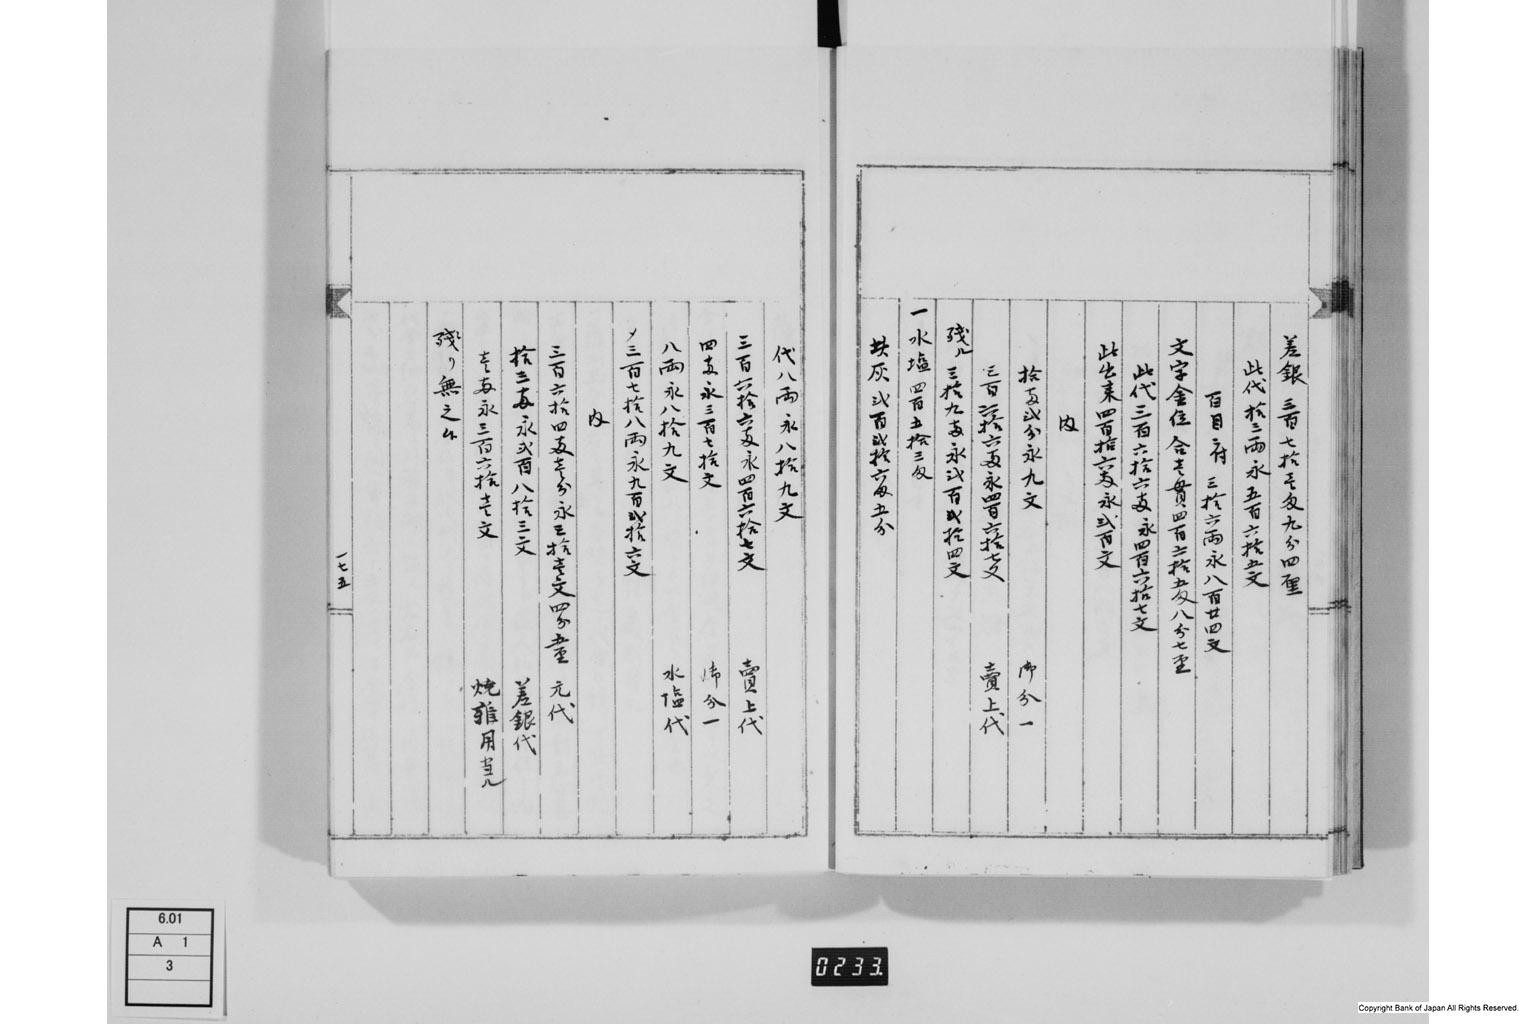 差銀 三百七拾壱匁九分四厘
此代拾二両永五百六拾五文
百目ニ付 三拾六両永八百廿四文
文字金位 合壱貫四百六拾五匁八分七厘
此代三百六拾六両永四百六拾七文
此出来四百拾六両永弐百文
内
拾両弐分永九文 御分一
三百六拾六両永四百六拾七文 賣上代
残ル 三拾九両永弐百弐拾四文
一水塩四百五拾三匁
鉄灰弐百弐拾六匁五分
代八両永八拾九文
三百六拾六両永四百六拾七文 賣上代
四両永三百七拾文 御分一
八両永八拾九文 水塩代
〆三百七拾八両永九百弐拾六文
内
三百六拾四両壱分永三拾壱文四分五厘 元代
拾三両永弐百八拾三文 差銀代
壱両永三百六拾壱文 焼雑用当ル
残り無之候
一七五
6.01
A 1
3
0233.
Copyright Bank of Japan All Rights Reserved.